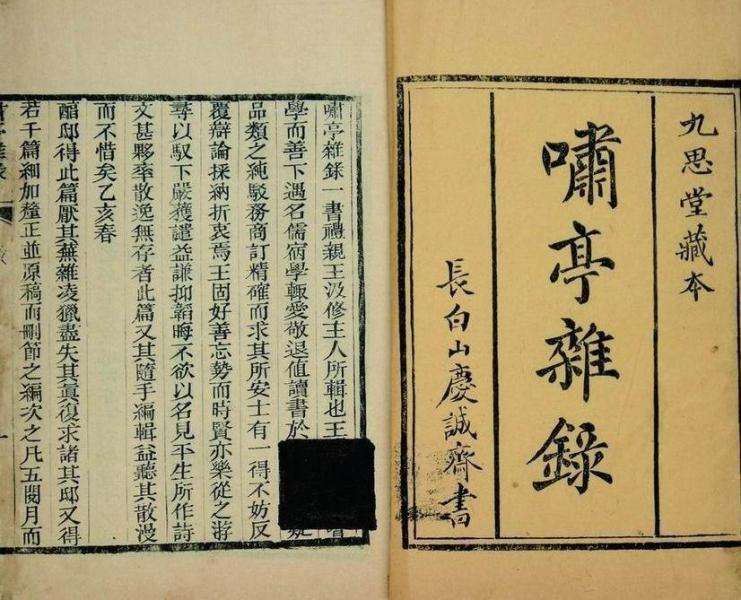 九思堂藏本
嘯亭雜錄
長白山慶誠齋書
嘯亭雜錄一書禮親王汲修主人所輯也王
學而善下遇名儒宿學輒愛敬退值讀書於
品類之純駁務商訂精確而求其所安士有一得不妨反
覆辯論採納折衷焉王固好善忘勢而時賢亦樂從之游
尋以馭下嚴獲譴益謙抑韜晦不欲以名見平生所作詩
文甚夥率散逸無存者此篇又其隨手編輯益聽其散漫
而不惜矣乙亥春
醕邸得此篇厭其蕪雜凌獵盡失其眞復求諸其邸又得
若干篇細加釐正並原稿而刪節之編次之凡五閱月而